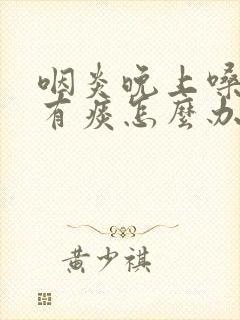 咽炎晚上嗓
有痰怎麼办
黄少祺